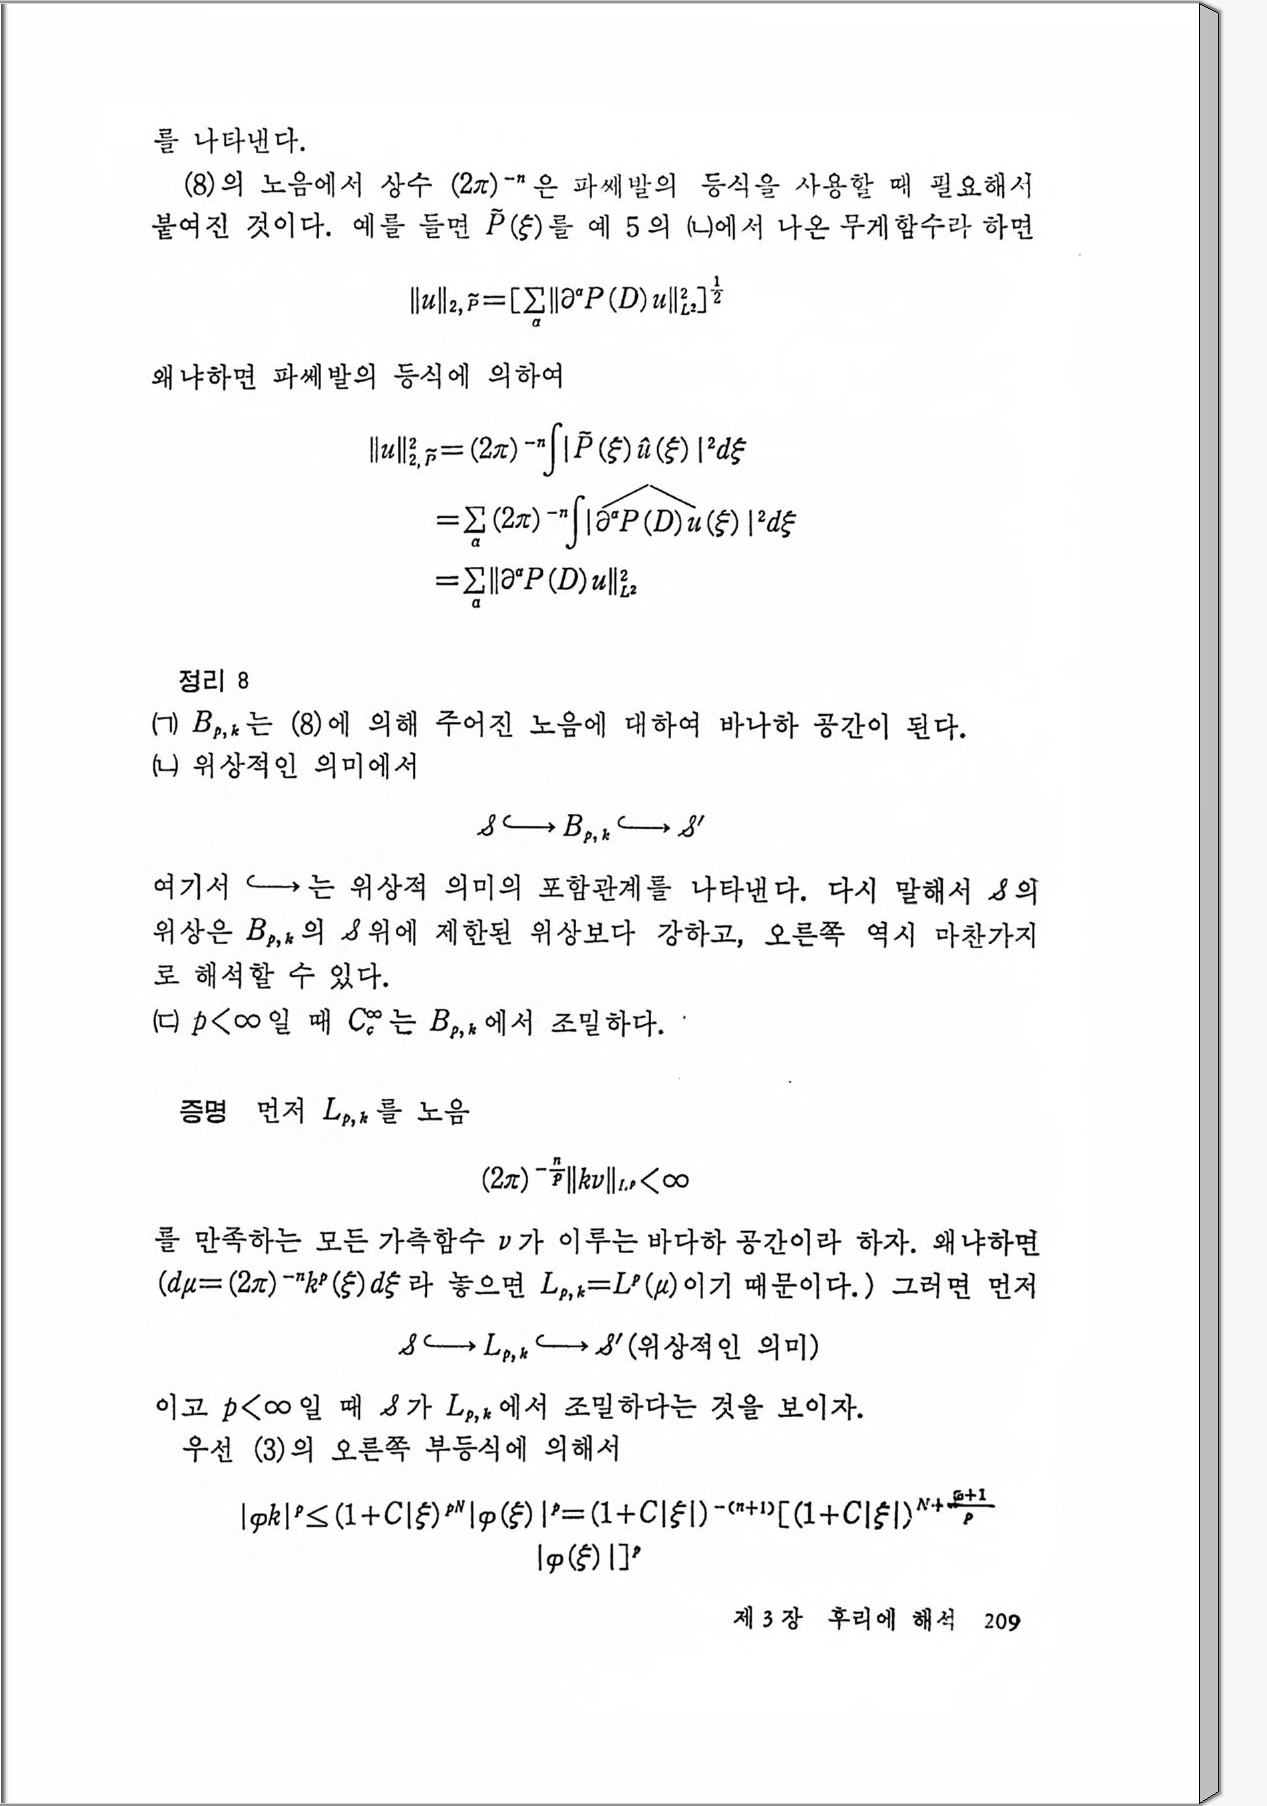 를 나타낸다.
(8)의 노음에서 상수 (2π)⁻ⁿ은 파쎄발의 등식을 사용할 때 필요해서
붙여진 것이다. 예를 들면 P̃(ξ)를 예 5의 ㈏에서 나온 무게함수라 하면
‖u‖₂,P̃=[∑_α‖∂^αP(D)u‖²_{L²}]^{1/2}
왜냐하면 파쎄발의 등식에 의하여
‖u‖²_{2,P̃}=(2π)⁻ⁿ∫|P̃(ξ)û(ξ)|²dξ
=∑_α(2π)⁻ⁿ∫|\widehat{∂^αP(D)u}(ξ)|²dξ
=∑_α‖∂^αP(D)u‖²_{L²}
정리 8
㈀ B_{p,k}는 (8)에 의해 주어진 노음에 대하여 바나하 공간이 된다.
㈁ 위상적인 의미에서
𝒮↪B_{p,k}↪𝒮′
여기서 ↪는 위상적 의미의 포함관계를 나타낸다. 다시 말해서 𝒮의
위상은 B_{p,k}의 𝒮위에 제한된 위상보다 강하고, 오른쪽 역시 마찬가지
로 해석할 수 있다.
㈂ p<∞일 때 C_c^∞는 B_{p,k}에서 조밀하다.
증명 먼저 L_{p,k}를 노음
(2π)^{-n/p}‖kv‖_{L^p}<∞
를 만족하는 모든 가측함수 v가 이루는 바다하 공간이라 하자. 왜냐하면
(dμ=(2π)⁻ⁿk^p(ξ)dξ라 놓으면 L_{p,k}=L^p(μ)이기 때문이다.) 그러면 먼저
𝒮↪L_{p,k}↪𝒮′(위상적인 의미)
이고 p<∞일 때 𝒮가 L_{p,k}에서 조밀하다는 것을 보이자.
우선 (3)의 오른쪽 부등식에 의해서
|φk|^p≤(1+C|ξ)^{pN}|φ(ξ)|^p=(1+C|ξ|)^{-(n+1)}[(1+C|ξ|)^{N+\frac{n+1}{p}}
|φ(ξ)|]^p
제 3 장 후리에 해석 209